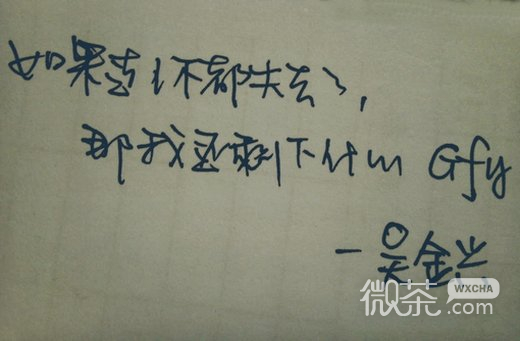 如果连你都失去了,
那我还剩下什么 Gfy
一吴金兴
微茶 WXCHA